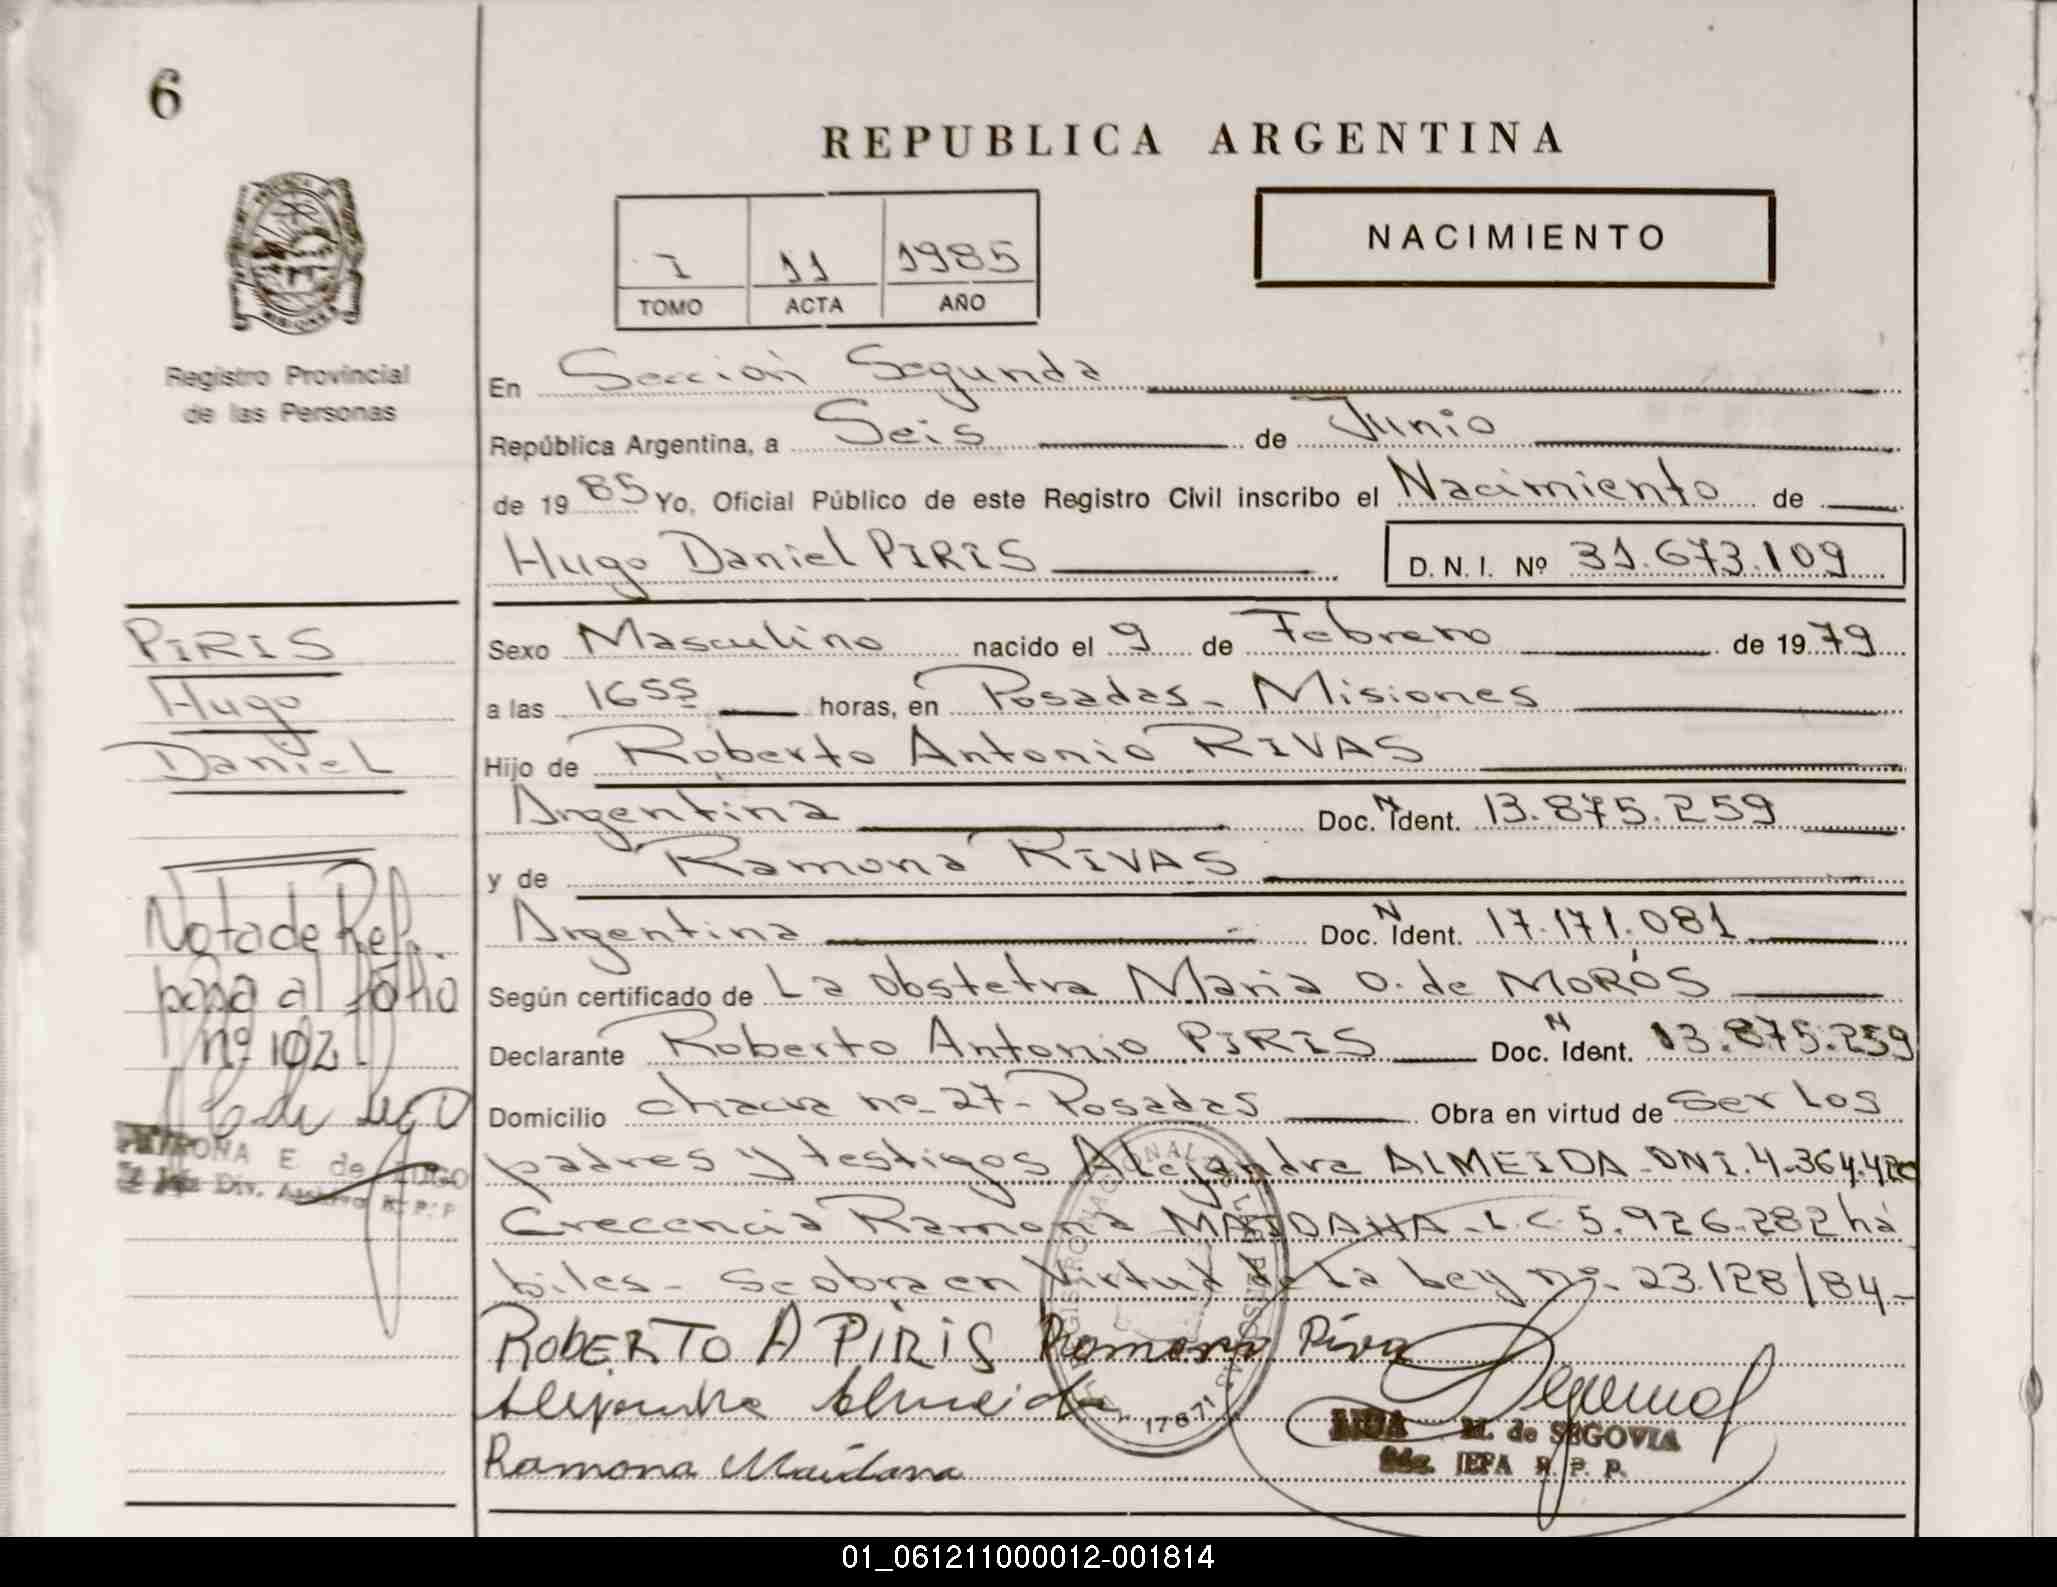 6
REPUBLICA ARGENTINA
I 11 1985
TOMO ACTA AÑO
NACIMIENTO
Registro Provincial
de las Personas
En Sección Segunda
República Argentina, a Seis de Junio
de 1985 Yo, Oficial Público de este Registro Civil inscribo el Nacimiento de
Hugo Daniel PIRIS D.N.I. Nº 31.673.109
PIRIS
Hugo
Daniel
Sexo Masculino nacido el 9 de Febrero de 1979
a las 16 55 horas, en Posadas - Misiones
Hijo de Roberto Antonio RIVAS
Argentina Doc. N Ident. 13.875.259
y de Ramona RIVAS
Argentina Doc. N Ident. 17.171.081
Según certificado de La Obstetra Maria O. de MORÓS
Declarante Roberto Antonio PIRIS Doc. N Ident. 13.875.259
Domicilio chacra nº 27 - Posadas Obra en virtud de Ser los
padres y testigos Alejandra ALMEIDA - DNI. 4.364.420
Crecencia Ramona MAIDANA - L.C. 5.926.282 há
biles - Se obra en Virtud de la Ley nº 23.128/84 -
ROBERTO A PIRIS Ramona Riva
Alejandra Almeida
Ramona Maidana
Nota de Ref.
pasa al folio
nº 102
PETRONA E de LUGO
Div. Archivo R. P. P.
REGISTRO NACIONAL DE LAS PERSONAS
17671
M. de SEGOVIA
IEPA R. P. P.
01_061211000012-001814